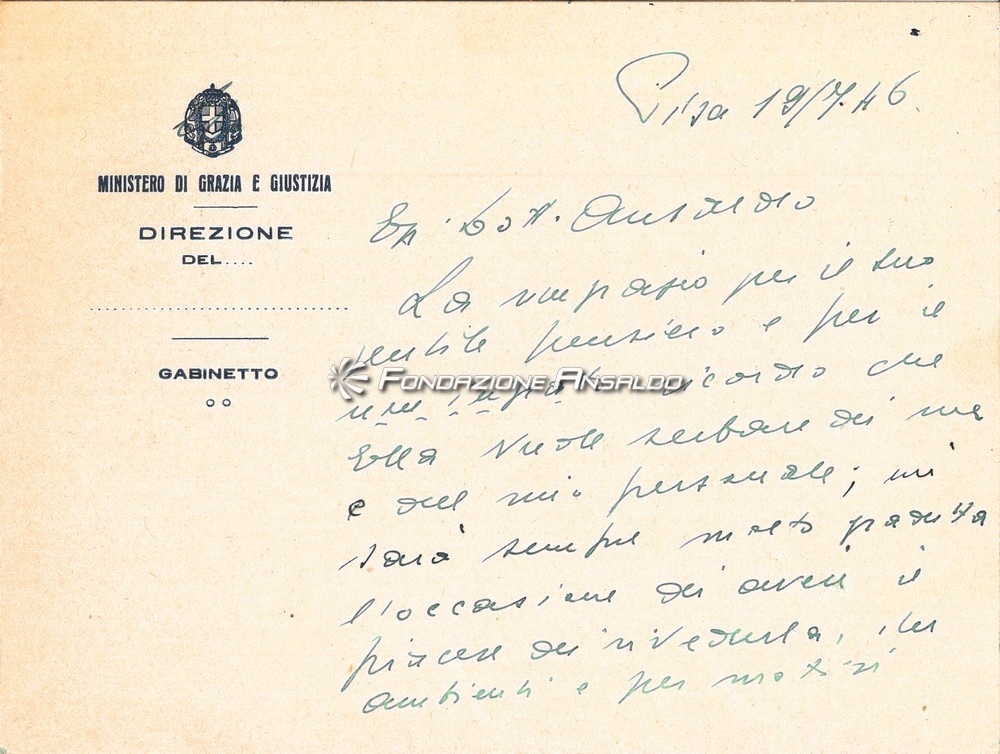 Pisa 19/7.46.
MINISTERO DI GRAZIA E GIUSTIZIA
DIREZIONE
DEL....
GABINETTO
Eg. Dott. Ansaldo
La ringrazio per il suo
gentile pensiero e per il
FONDAZIONE ANSALDO
ricordo che
Ella vuole serbare di me
e del mio personale; mi
sarà sempre molto gradita
l'occasione di avere il
piacere di rivederla, in
ambienti e per motivi